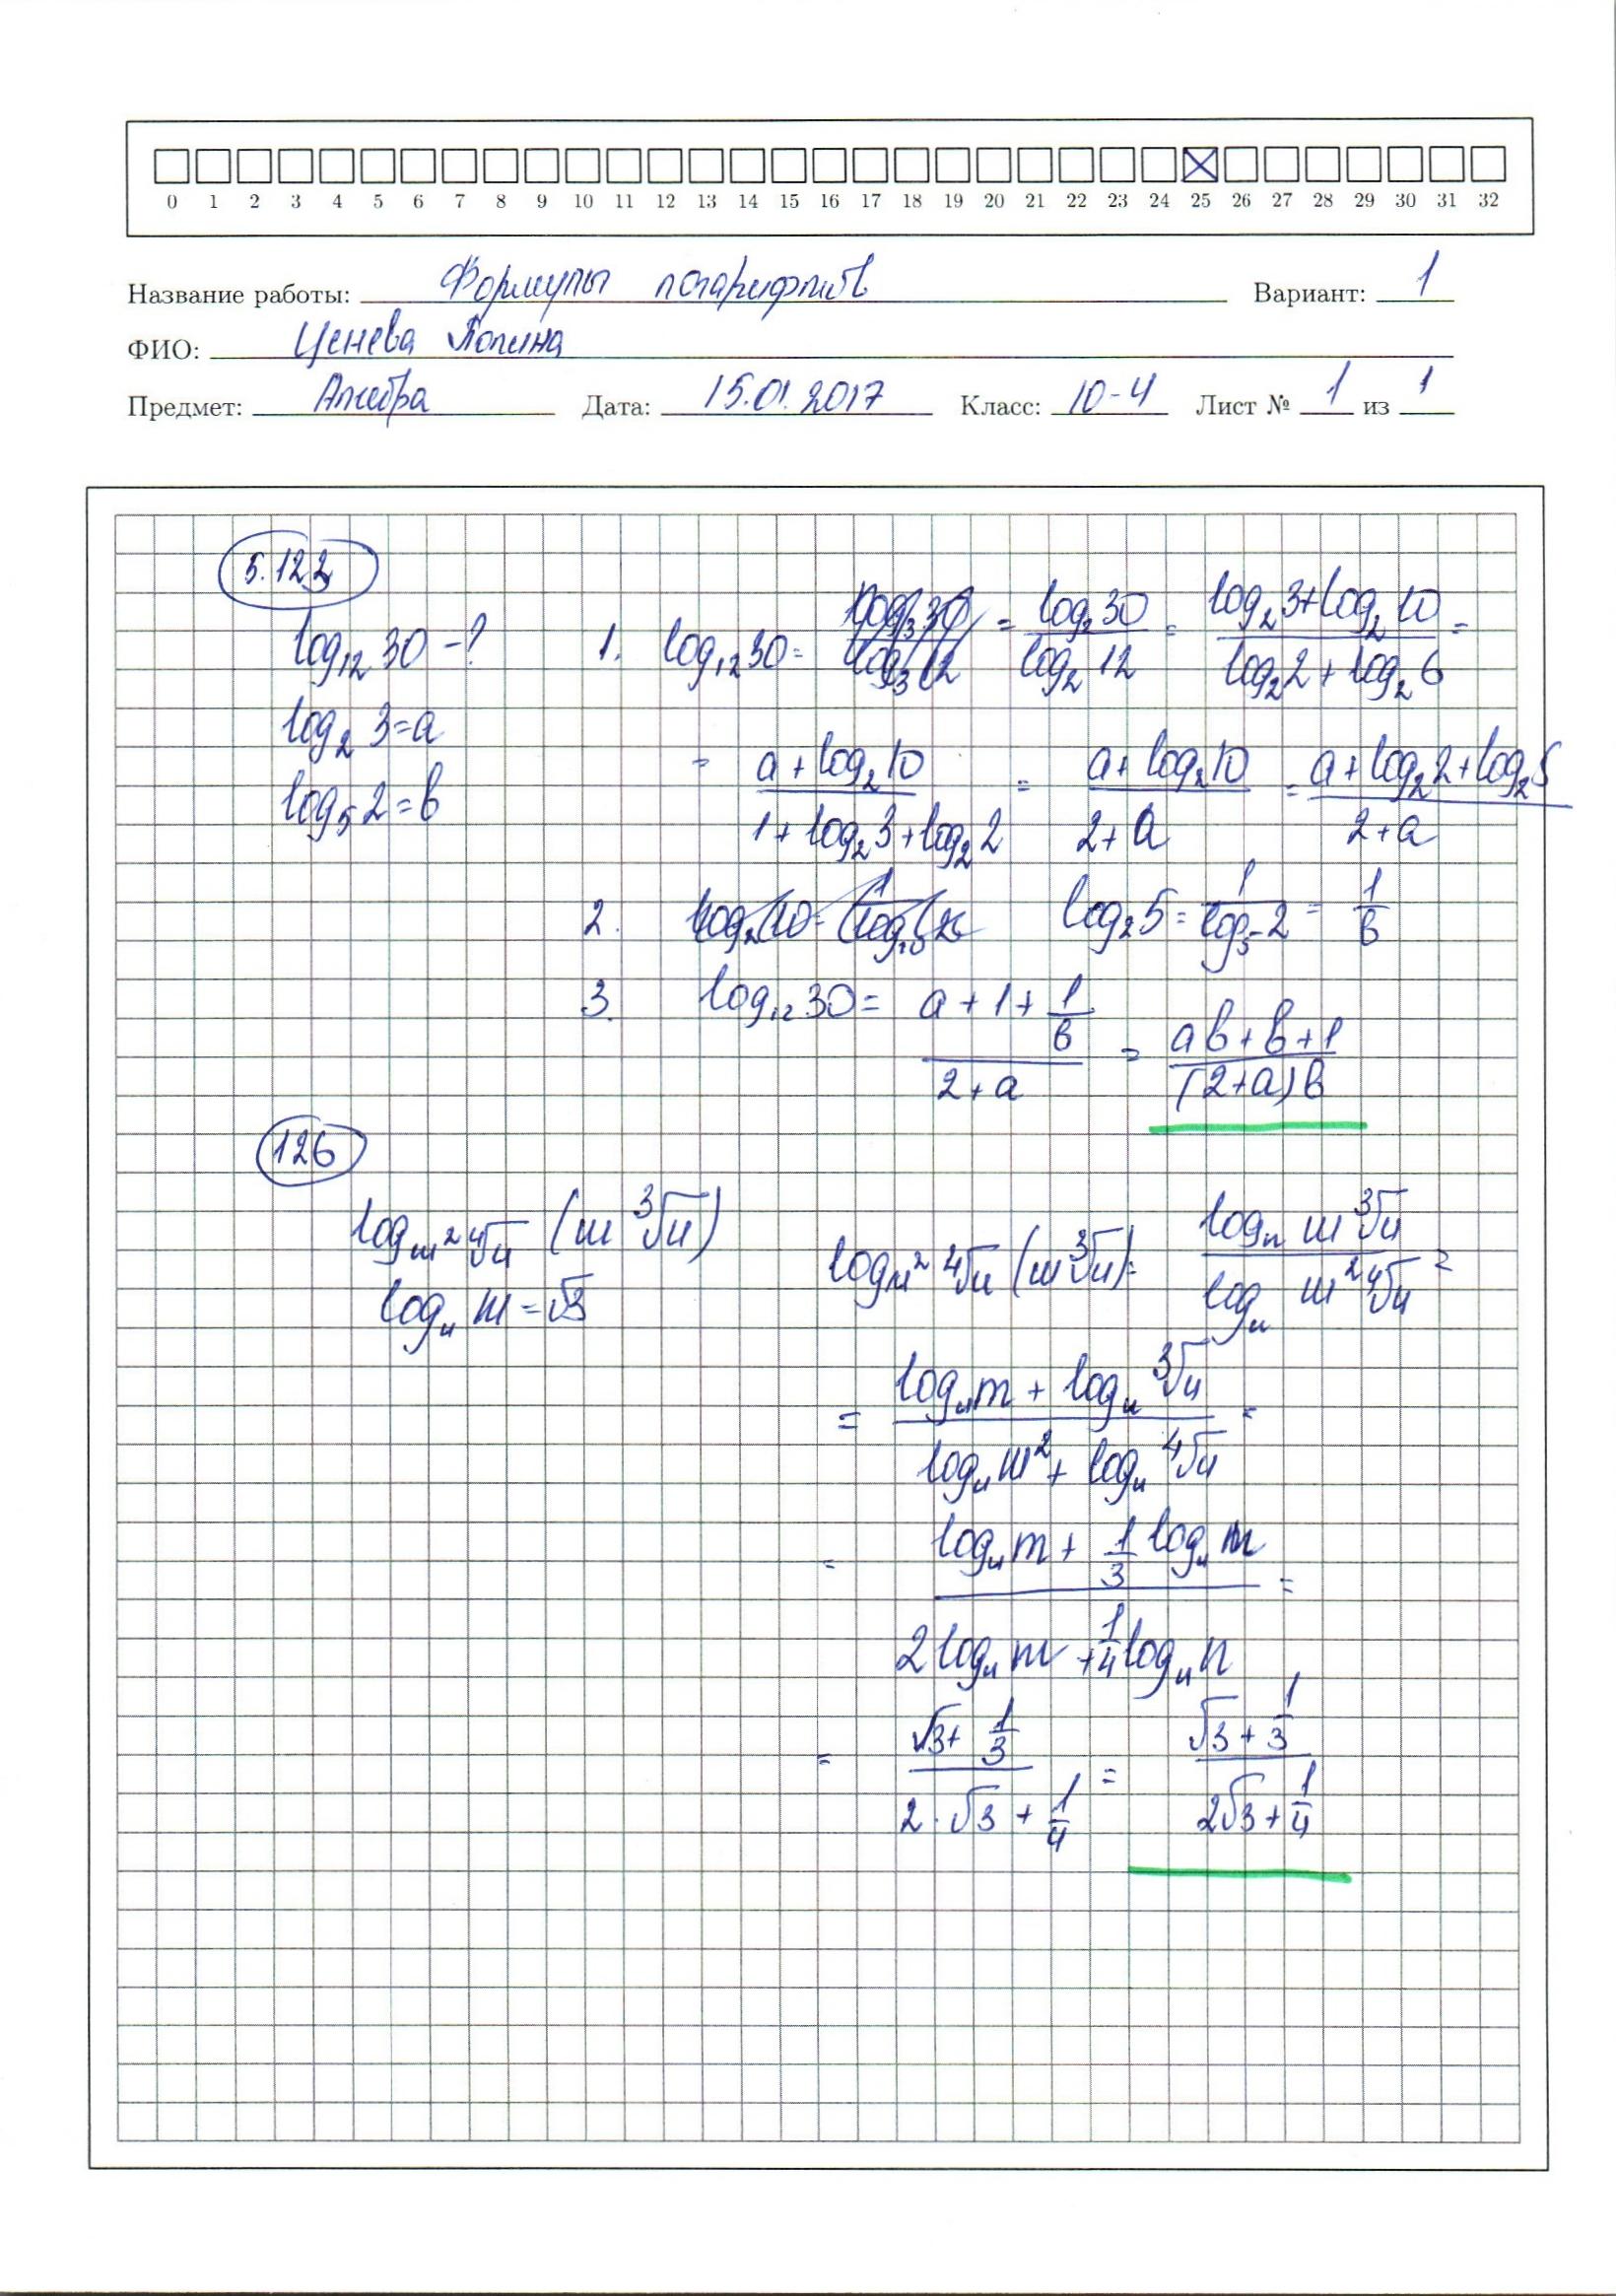 0 1 2 3 4 5 6 7 8 9 10 11 12 13 14 15 16 17 18 19 20 21 22 23 24 25 26 27 28 29 30 31 32
Название работы: Формулы логарифмов Вариант: 1
ФИО: Ценева Полина
Предмет: Алгебра Дата: 15.01.2017 Класс: 10-4 Лист № 1 из 1
5.122
log₁₂ 30 - ?
log₂ 3 = a
log₅ 2 = b
1. log₁₂ 30 = = log₂ 30 / log₂ 12 = (log₂ 3 + log₂ 10) / (log₂ 2 + log₂ 6) =
= (a + log₂ 10) / (1 + log₂ 3 + log₂ 2) = (a + log₂ 10) / (2 + a) = (a + log₂ 2 + log₂ 5) / (2 + a)
2. log₂ 5 = 1 / log₅ 2 = 1/b
3. log₁₂ 30 = (a + 1 + 1/b) / (2 + a) = (ab + b + 1) / ((2 + a) b)
126
log_{m² ⁴√n} (m ³√n)
log_n m = √3
log_{m² ⁴√n} (m ³√n) = log_n m ³√n / log_n m² ⁴√n =
= (log_n m + log_n ³√n) / (log_n m² + log_n ⁴√n) =
= (log_n m + 1/3 log_n n) / (2 log_n m + 1/4 log_n n) =
= (√3 + 1/3) / (2 · √3 + 1/4) = (√3 + 1/3) / (2√3 + 1/4)